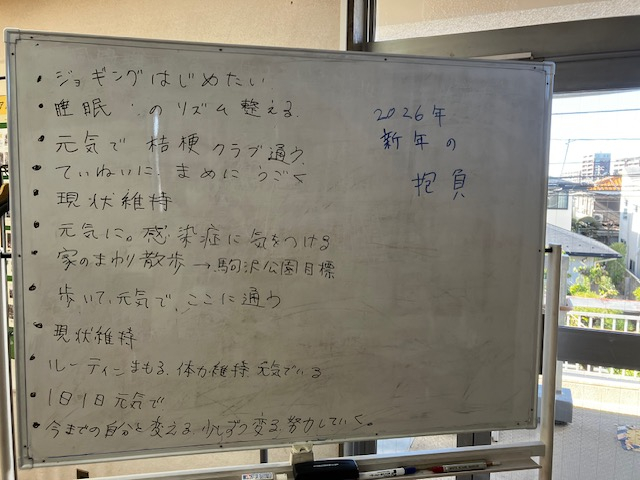 2026年
新年の
抱負
・ジョギングはじめたい
・睡眠・のリズム整える
・元気で 桔梗クラブ通う
・ていねいに まめに うごく
・現状維持
・元気に。感染症に気をつける
・家のまわり散歩→駒沢公園目標
・歩いて、元気で、ここに通う
・現状維持
・ルーティンまもる、体力維持、元気でいる
・1日1日元気で
・今までの自分を変える 少しずつ変る 努力していく。